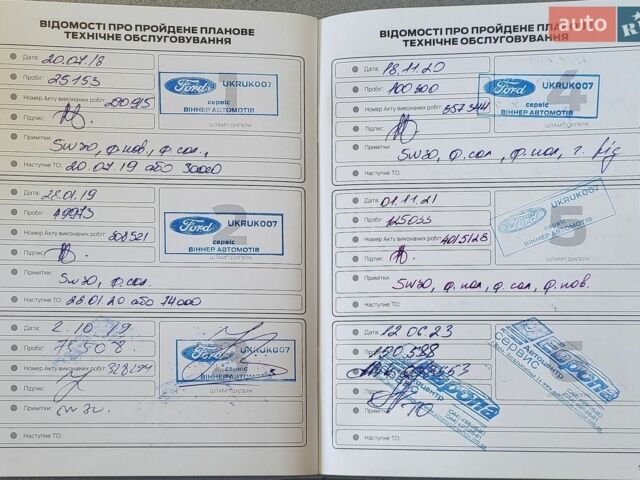 ВІДОМОСТІ ПРО ПРОЙДЕНЕ ПЛАНОВЕ
ТЕХНІЧНЕ ОБСЛУГОВУВАННЯ
Дата: 20.07.18
Пробіг: 25153
Номер Акту виконаних робіт:
Підпис:
ШТАМП ДИЛЕРА
Ford UKRUK007
сервіс
ВІННЕР АВТОМОТІВ
Примітки:
5W30, ф. пов., ф. сал.,
Наступне ТО: 20.07.19 або 30000
Дата: 28.01.19
Пробіг: 49973
Номер Акту виконаних робіт:
Підпис:
2
Ford UKRUK007
сервіс
ВІННЕР АВТОМОТІВ
ШТАМП ДИЛЕРА
Примітки:
5W30, ф. сал.
Наступне ТО: 28.01.20 або 74000
Дата: 2.10.19
Пробіг: 75508.
Номер Акту виконаних робіт: 328294
Підпис:
Ford UKRUK007
сервіс
ВІННЕР АВТОМОТІВ
ШТАМП ДИЛЕРА
Примітки:
Наступне ТО:
ВІДОМОСТІ ПРО ПРОЙДЕНЕ ПЛАНОВЕ
ТЕХНІЧНЕ ОБСЛУГОВУВАННЯ
auto
Дата: 18.11.20
Пробіг: 100300
Номер Акту виконаних робіт: 357344
Підпис:
4
Ford UKRUK007
сервіс
ВІННЕР АВТОМОТІВ
ШТАМП ДИЛЕРА
Примітки:
5W30, ф. сал, ф. пал,
Наступне ТО:
Дата: 01.11.21
Пробіг: 125033
Номер Акту виконаних робіт: 4015128
Підпис:
5
Ford UKRUK007
сервіс
ВІННЕР АВТОМОТІВ
Примітки:
5W30, ф. пал, ф. сал, ф. пов.
Наступне ТО:
Дата: 12.06.23
Пробіг: 150588
Підпис:
Європа
Автоцентр
СЕРВИС
Примітки: ТО
Наступне ТО: